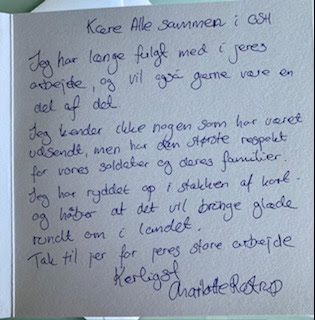 Kære Alle sammen i GSH
Jeg har længe fulgt med i jeres
arbejde, og vil også gerne være en
del af det
Jeg kender ikke nogen som har været
udsendt, men har den største respekt
for vores soldater og deres familier.
Jeg har ryddet op i stakken af kort -
og håber at det vil bringe glæde
rundt om i landet.
Tak til jer for jeres store arbejde
Kærligst
Charlotte